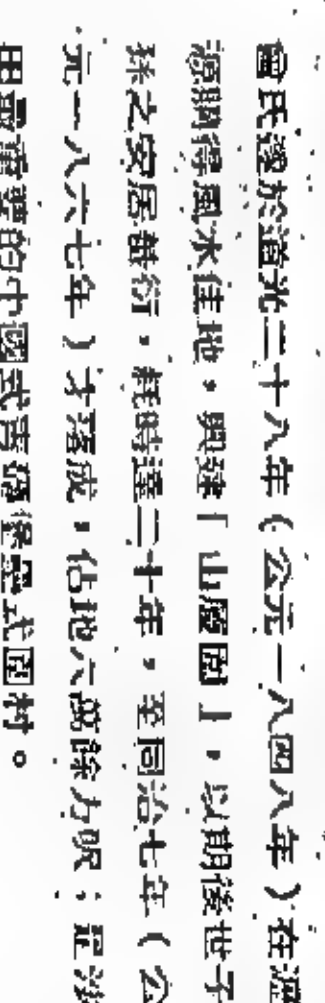 曾氏遂於道光二十八年(公元一八四八年)在
源購得風水佳地,興建「山廈圍」,以期後世子
孫之安居繁衍,耗時達二十年,至同治七年(公
元一八六七年)才落成,佔地六萬餘方呎;是
最重要的中國式青磚堡壘式圍村。